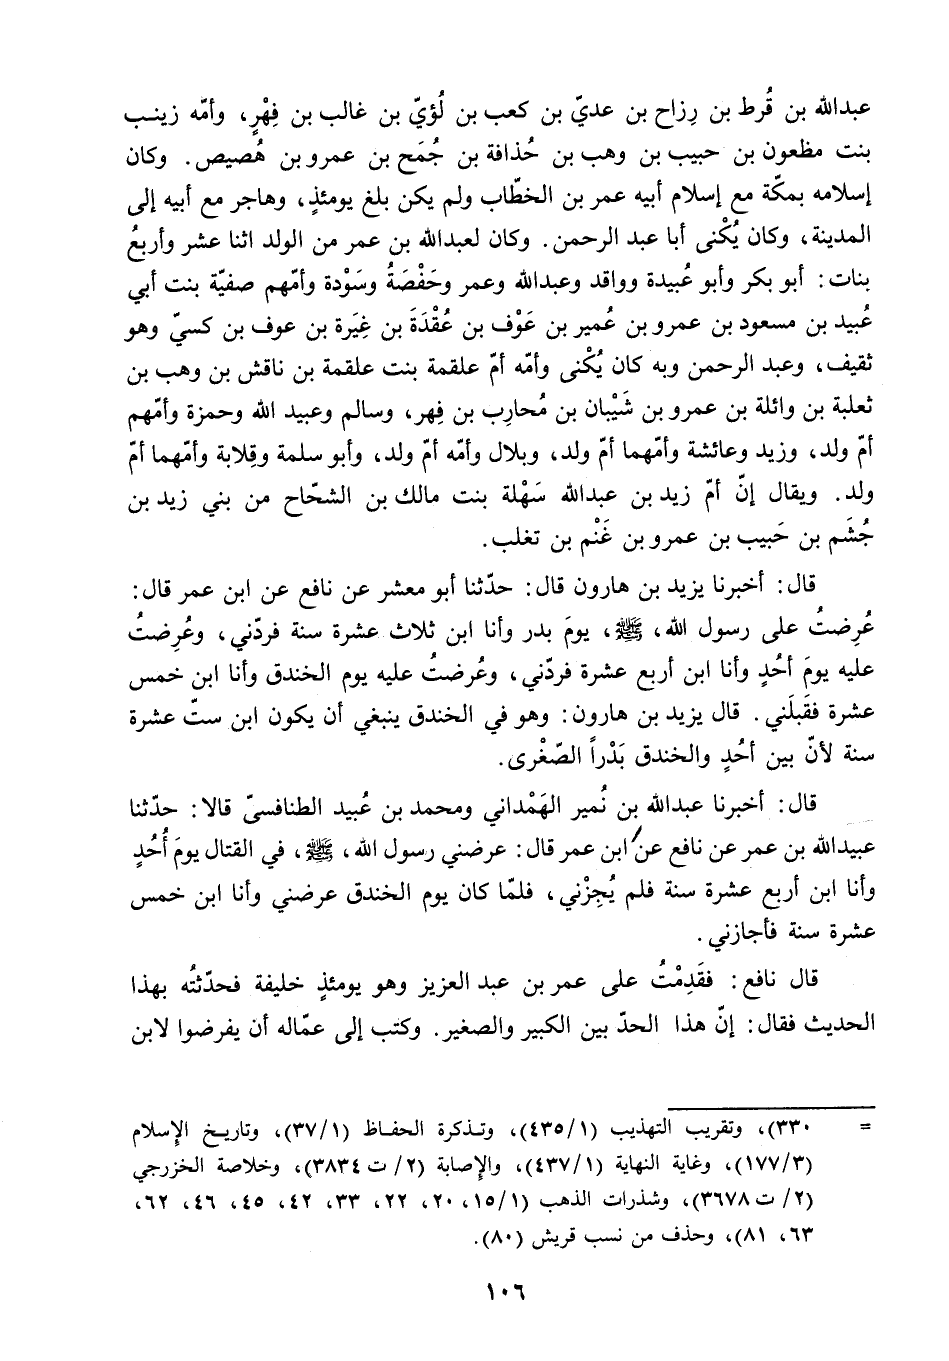 عبدالله بن قُرط بن رِزاح بن عديّ بن كعب بن لُؤيّ بن غالب بن فِهْرٍ، وأمّه زينب
بنت مظعون بن حبيب بن وهب بن حُذافة بن جُمَح بن عمرو بن هُصيص. وكان
إسلامه بمكّة مع إسلام أبيه عمر بن الخطّاب ولم يكن بلغ يومئذٍ، وهاجر مع أبيه إلى
المدينة، وكان يُكْنى أبا عبد الرحمن. وكان لعبدالله بن عمر من الولد اثنا عشر وأربعُ
بنات: أبو بكر وأبو عُبيدة وواقد وعبدالله وعمر وحَفْصَةُ وسَوْدة وأمّهم صفيّة بنت أبي
عُبيد بن مسعود بن عمرو بن عُمير بن عَوْف بن عُقْدَةَ بن غِيَرة بن عوف بن كسيّ وهو
ثقيف، وعبد الرحمن وبه كان يُكْنى وأمّه أمّ علقمة بنت علقمة بن ناقش بن وهب بن
ثعلبة بن وائلة بن عمرو بن شَيْبان بن مُحارِب بن فِهر، وسالم وعبيد الله وحمزة وأمّهم
أمّ ولد، وزيد وعائشة وأمّهما أمّ ولد، وبلال وأمّه أمّ ولد، وأبو سلمة وقِلابة وأمّهما أمّ
ولد. ويقال إنّ أمّ زيد بن عبدالله سَهْلة بنت مالك بن الشحّاح من بني زيد بن
جُشَم بن حَبيب بن عمرو بن غَنْم بن تغلب.
قال: أخبرنا يزيد بن هارون قال: حدّثنا أبو معشر عن نافع عن ابن عمر قال:
عُرِضتُ على رسول الله، ﷺ، يومَ بدر وأنا ابن ثلاث عشرة سنة فردّني، وعُرِضتُ
عليه يومَ أحُدٍ وأنا ابن أربع عشرة فردّني، وعُرضتُ عليه يوم الخندق وأنا ابن خمس
عشرة فقَبلَني. قال يزيد بن هارون: وهو في الخندق ينبغي أن يكون ابن ستّ عشرة
سنة لأنّ بين أحُدٍ والخندق بَدْراً الصّغْرى.
قال: أخبرنا عبدالله بن نُمير الهَمْداني ومحمد بن عُبيد الطنافسيّ قالا: حدّثنا
عبيدالله بن عمر عن نافع عن ابن عمر قال: عرضني رسول الله، ﷺ، في القتال يومَ أُحُدٍ
وأنا ابن أربع عشرة سنة فلم يُجِزْني، فلمّا كان يوم الخندق عرضني وأنا ابن خمس
عشرة سنة فأجازني.
قال نافع: فقَدِمْتُ على عمر بن عبد العزيز وهو يومئذٍ خليفة فحدّثتُه بهذا
الحديث فقال: إنّ هذا الحدّ بين الكبير والصغير. وكتب إلى عمّاله أن يفرضوا لابن
= ٣٣٠)، وتقريب التهذيب (١/٤٣٥)، وتذكرة الحفاظ (١/٣٧)، وتاريخ الإسلام
(٣/١٧٧)، وغاية النهاية (١/٤٣٧)، والإصابة (٢/ ت ٣٨٣٤)، وخلاصة الخزرجي
(٢/ ت ٣٦٧٨)، وشذرات الذهب (١/١٥، ٢٠، ٢٢، ٣٣، ٤٢، ٤٥، ٤٦، ٦٢،
٦٣، ٨١)، وحذف من نسب قريش (٨٠).
١٠٦